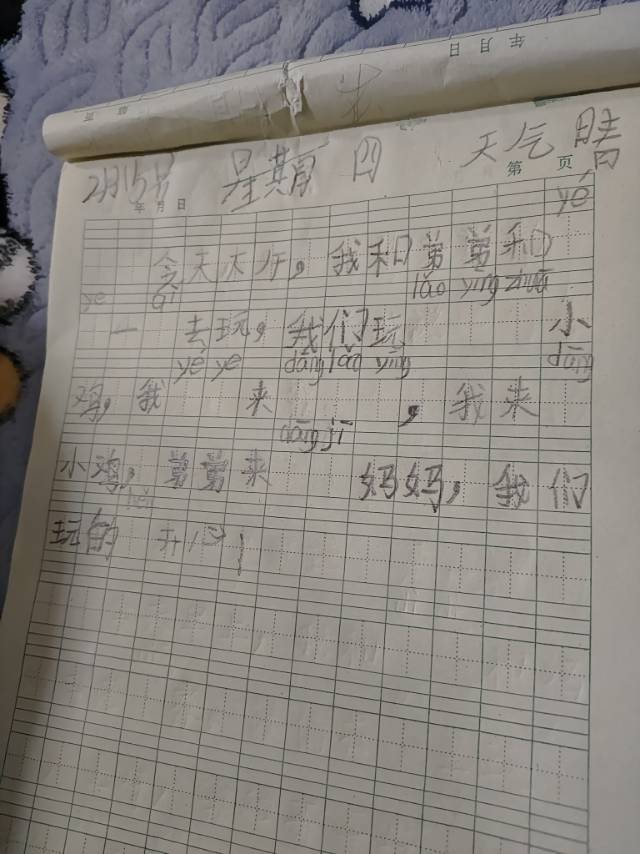 年 月 日
2月15号 星期四 天气晴
年 月 日 第 页
yé
今天下午,我和弟弟和
ye qǐ lǎo yīng zhuā
一 去玩,我们玩 小
yé ye dāng lǎo yīng dāng
鸡,我 来 ,我来
dāng jī
小鸡,弟弟来 妈妈,我们
玩的 开心!